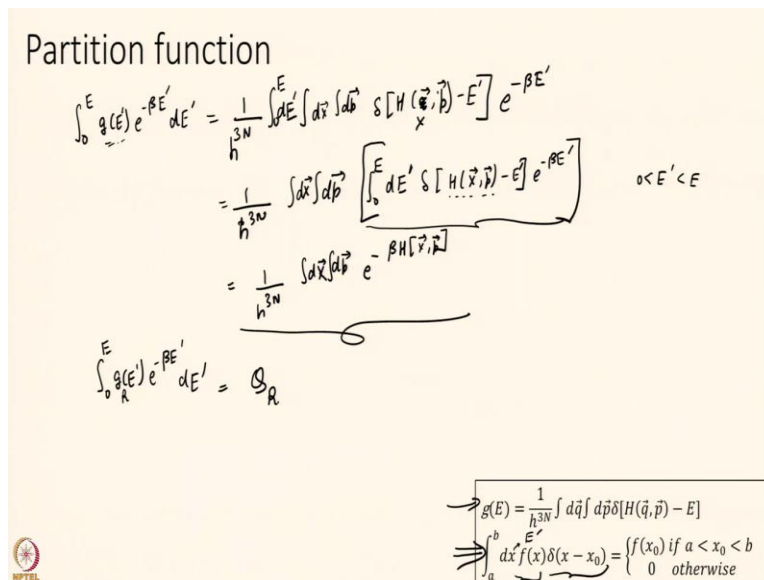 Partition function
∫₀ᴱ g(E') e^{-βE'} dE' = 1/h^{3N} ∫₀ᴱ dE' ∫dx⃗ ∫dp⃗ δ[H(x⃗,p⃗)-E'] e^{-βE'}
= 1/h^{3N} ∫dx⃗ ∫dp⃗ [∫₀ᴱ dE' δ[H(x⃗,p⃗)-E'] e^{-βE'}] 0<E'<E
= 1/h^{3N} ∫dx⃗ ∫dp⃗ e^{-βH[x⃗,p⃗]}
∫₀ᴱ g_R(E') e^{-βE'} dE' = Q_R
g(E) = 1/h^{3N} ∫ dq⃗ ∫ dp⃗ δ[H(q⃗,p⃗) − E]
E'
∫ₐᵇ dx f(x)δ(x − x₀) = {f(x₀) if a < x₀ < b
0 otherwise
NPTEL